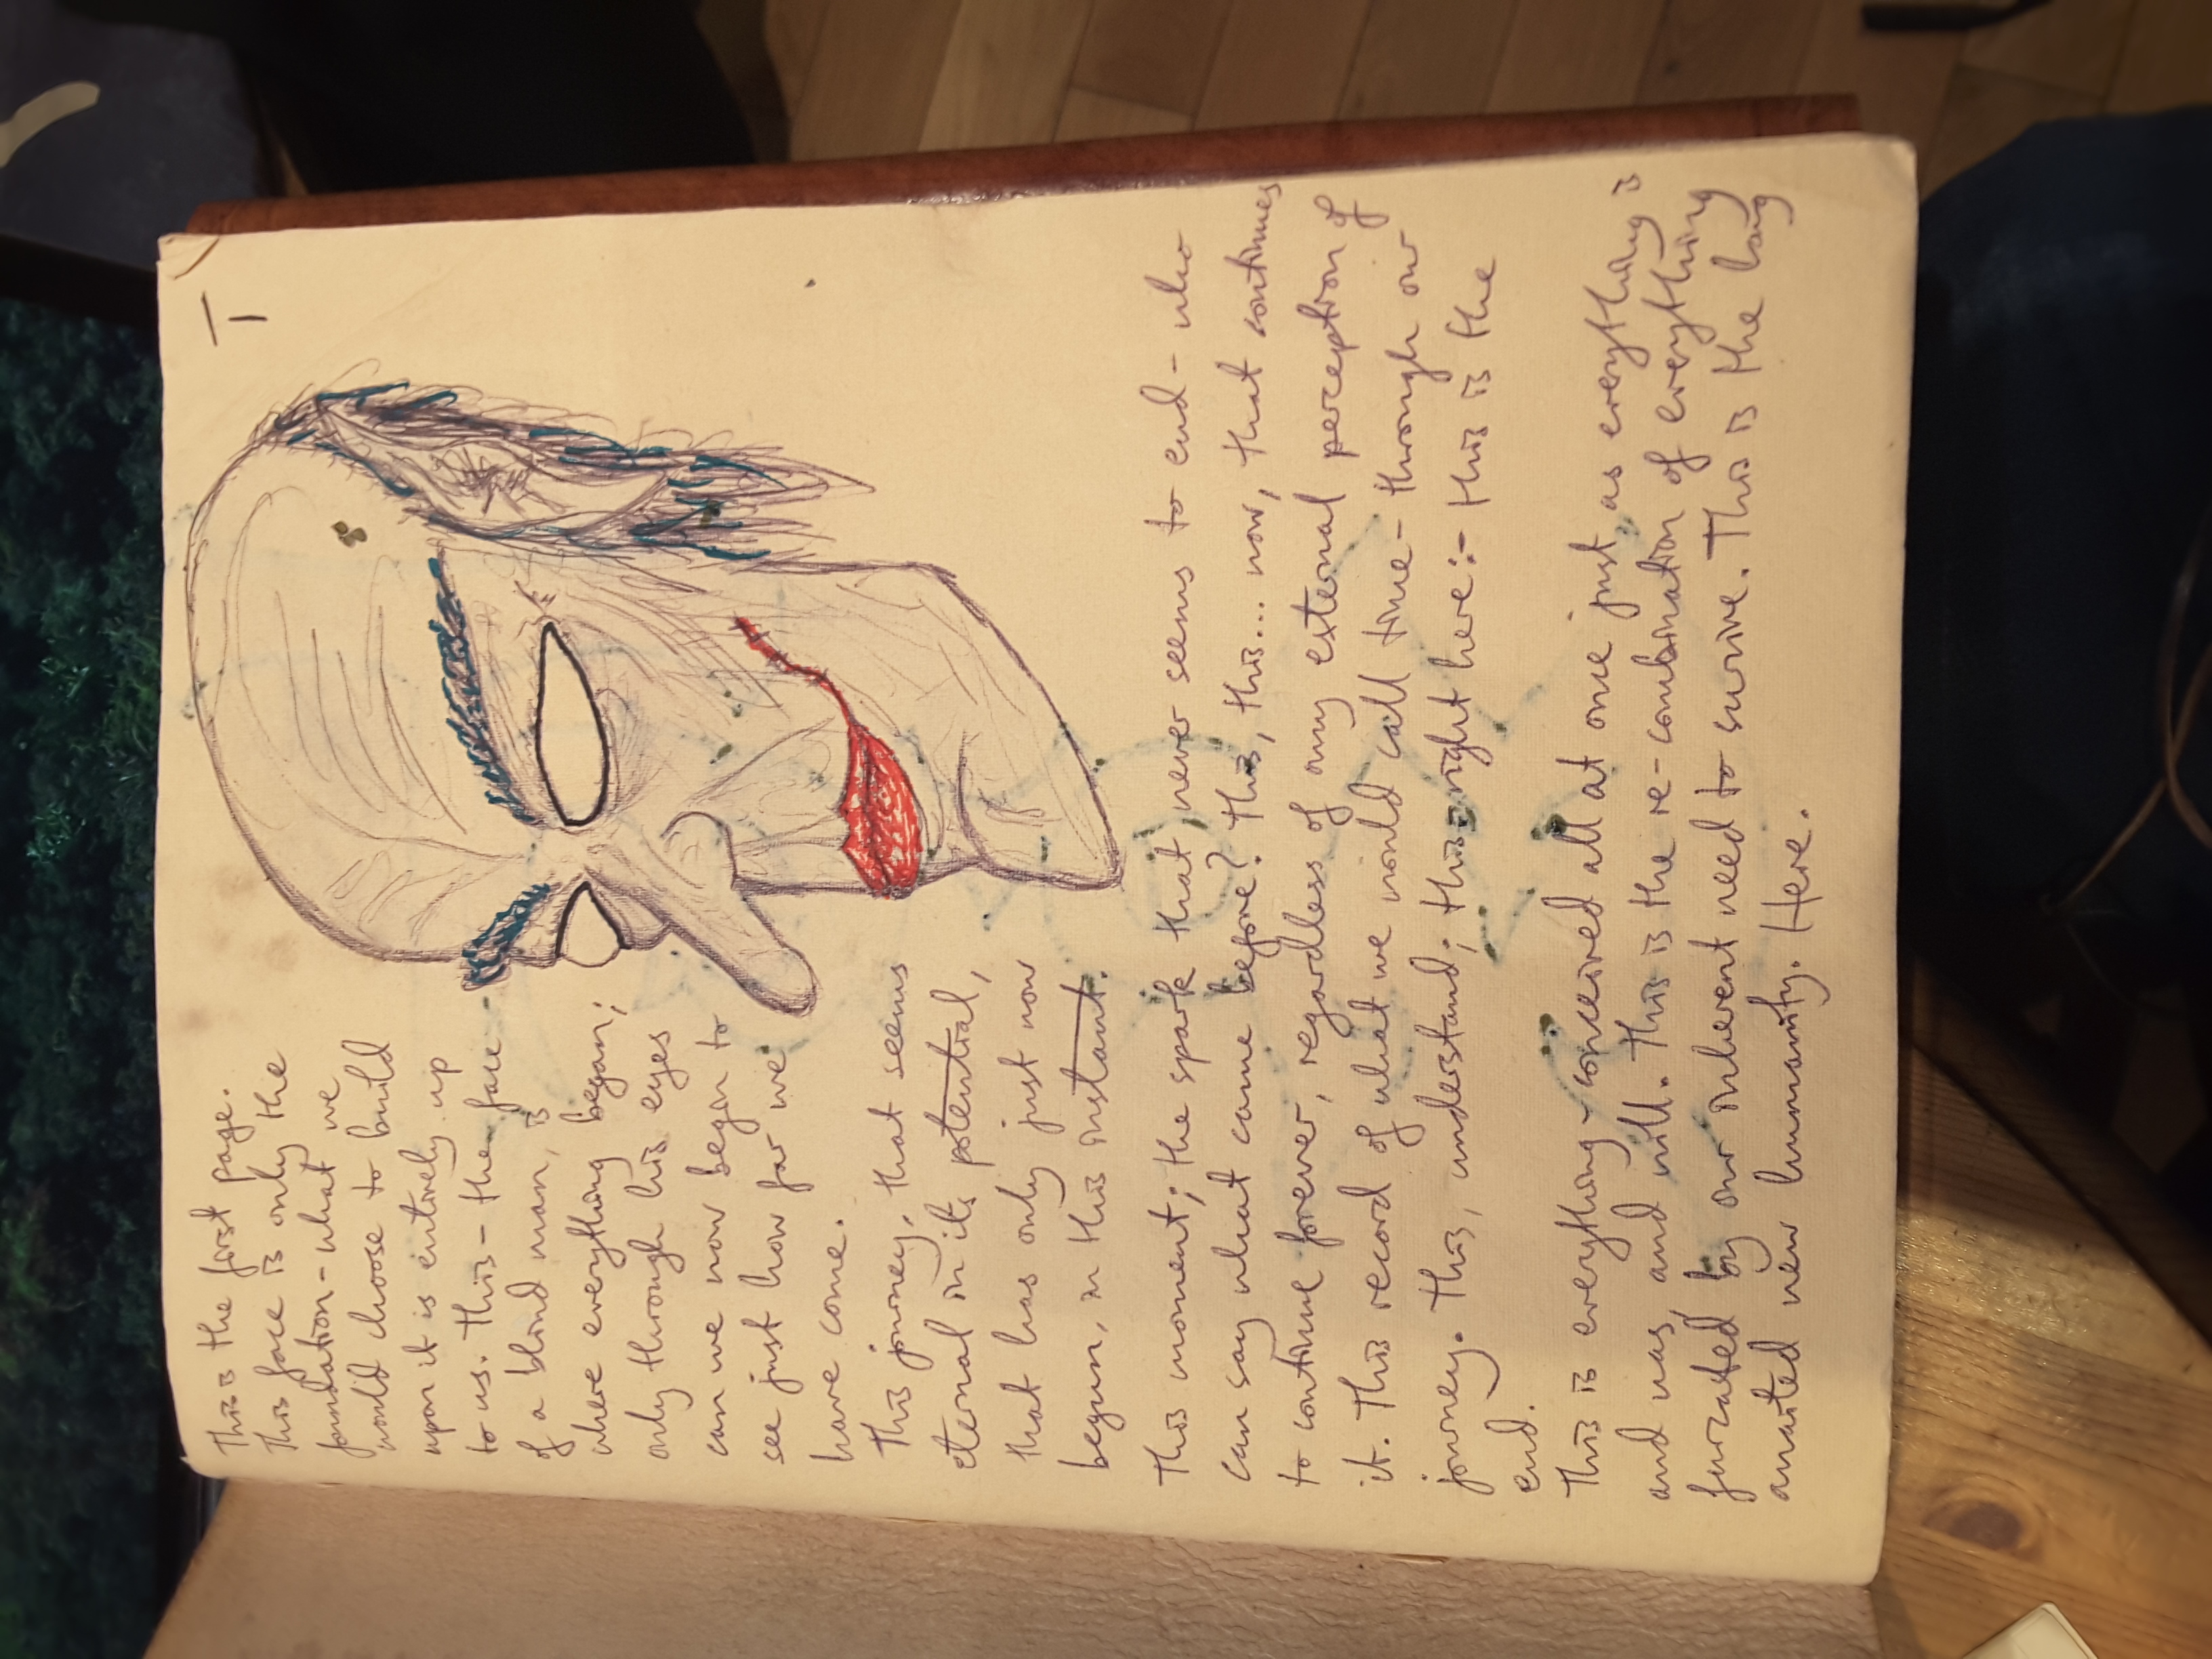 I
This is the first page.
This face is only the
foundation - what we
would choose to build
upon it is entirely up
to us. This - the face
of a blind man, is
where everything began;
only through his eyes
can we now begin to
see just how far we
have come.
This journey, that seems
eternal in its potential,
that has only just now
begun, in this instant.
This moment; the spark that never seems to end - who
can say what came before? This, this... now, that continues
to continue forever, regardless of any external perception of
it. This record of what we would call time - through our
journey. This, understand; this - right here:- this is the
end.
This is everything - conceived all at once just as everything is
and was, and will. This is the re-combination of everything
by our inherent need to survive. This is the long
awaited new humanity. Here.